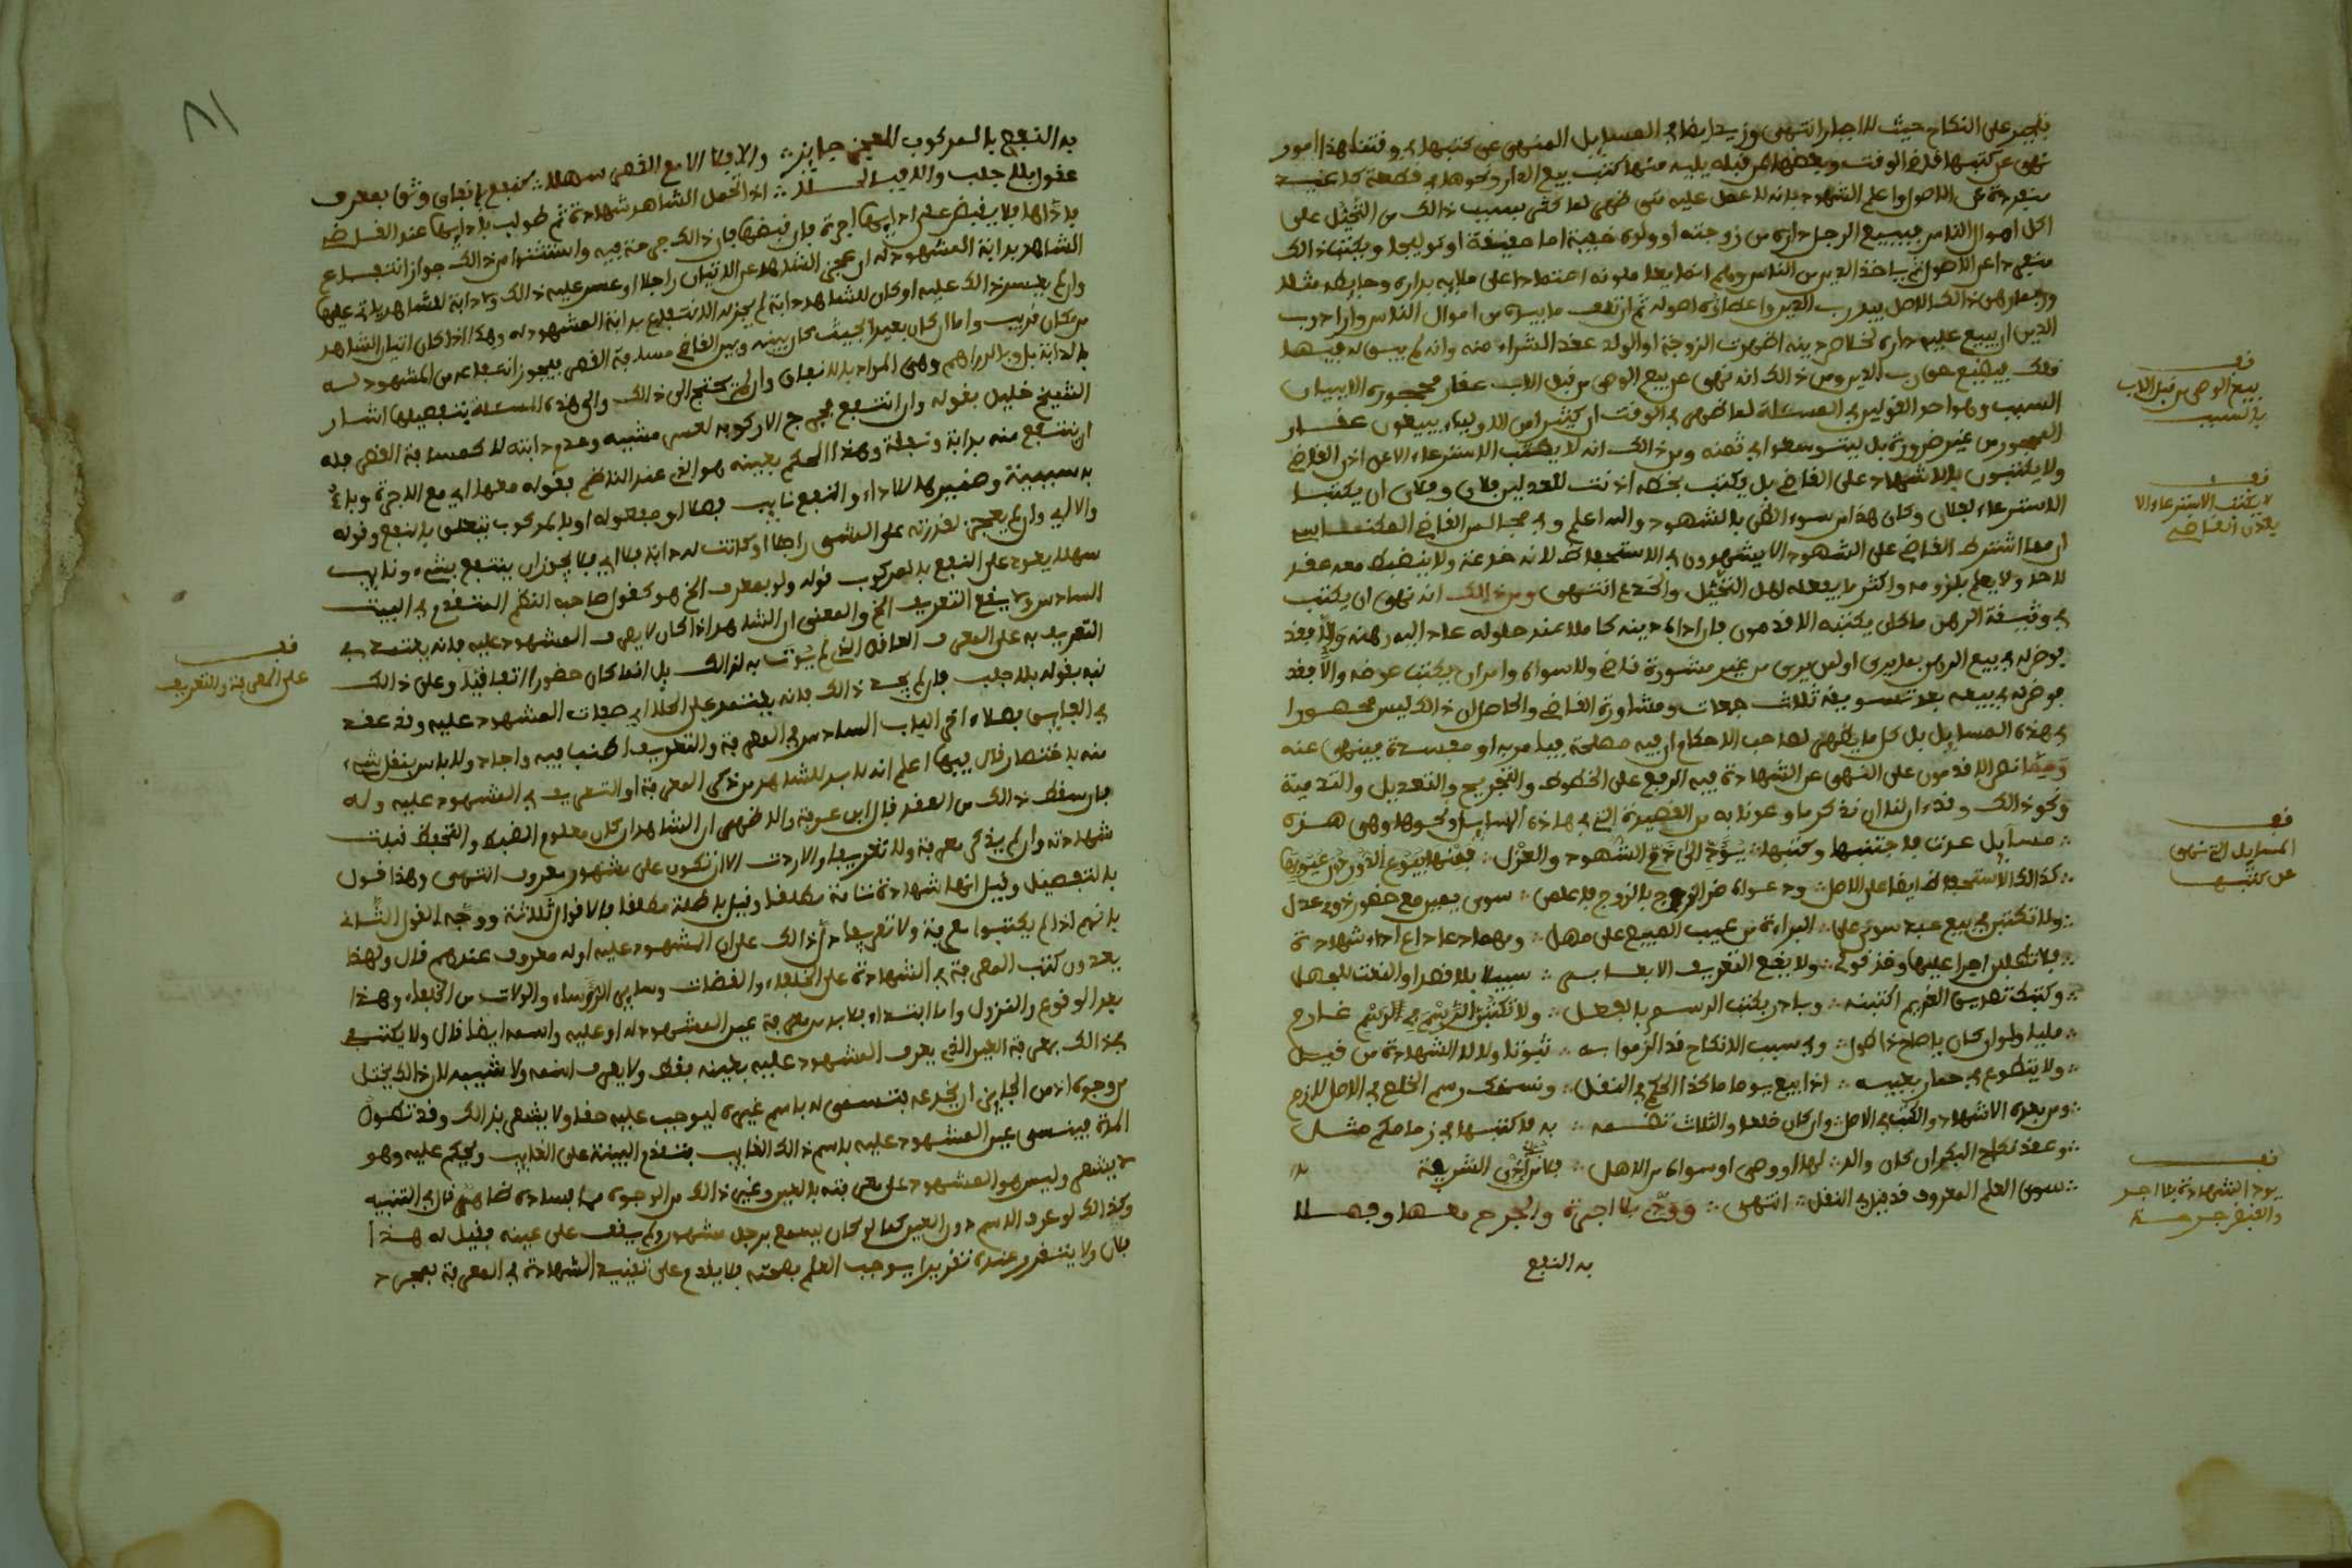 تجبر على النكاح حيث لا اجبار انتهى وزيد ايضا في المسايل المنهي عن كتبها في وقتنا هذا امور
نهى عن كتبها قاضي الوقت وبعضها من قبله يليه منها كتب بيع الدار ونحوها في قطعة كاغيد
منفردة عن الاصول واعلم الشهود بانه لا عمل عليه متى ظهر لما كثر بسبب ذالك من التحيل على
اكل اموال الناس فيبيع الرجل داره من زوجته او ولده خفية اما حقيقة او توليجا ويكتب ذالك
منفردا عن الاصول ثم ياخذ الدين من الناس
الدين ان يبيع عليه داره لخلاص دينه اظهرت الزوجة او الولد عقد الشراء منه وانه لم يبق له فيها
ومن ذالك انه نهى عن بيع الوصي من قبل الاب عقار محجوره الا ببيان
السبب وهو احد القولين في المسئلة لما ظهر في الوقت ان كثيرا من الاولياء يبيعون عقار
المحجور من غير ضرورة بل ليتوسعوا في ثمنه ومن ذالك انه لا يكتب الاسترعاء الا عن اذن القاضي
ولا يكتبون بالاشهاد على القاضي بل يكتب بخطه اذنت للعدلين فلان وفلان ان يكتبا
الاسترعاء لفلان وكان هذا من سوء الظن بالشهود والله اعلم وفي مجالس القاضي المكناسي
ان مما اشترط القاضي على الشهود الا يشهدون في الاستحفاظ لانه خدعة ولا ينضبط معه عقد
لاحد ولا يعلم بلزومه واكثر ما يفعله اهل التحيل والخدع انتهى ومن ذالك انه نهى ان يكتب
في وثيقة الرهن ما كان يكتبه الاقدمون فان اداه دينه كاملا عند حلوله عاد اليه رهنه والا فقد
فوض له في بيع الرهن بما يرى او لمن يرى من غير مشورة قاض ولا سواه وامر ان يكتب عوضه والا فقد
فوض له في بيعه بعد تسويقه ثلاث جمعات ومشاورة القاضي والحاصل ان ذالك ليس محصورا
في هذه المسايل بل كل ما يظهر لصاحب الاحكام ان فيه مصلحة فيامر به او مفسدة فينهى عنه
ومما نص الاقدمون على النهي عن الشهادة فيه الرفع على الخطوط والتجريح والتعديل والتدمية
ونحو ذالك وقد ان لنا ان نذكر ما وعدنا به من القصيدة التي في هاذه المسايل ونحوها وهي هذه
مسايل عدت فاجتنبها وكتبها يؤدي الى دفع الشهود والعزل فمنها بيوع الدور دون
كذالك الاستحفاظ ايضا على الاصل ودعواه ضر الزوج بالزوج فاعلمن سوى بعير مع حضور ذوي عدل
ولا تكتبن في بيع عبد سوى على البراءة من عيب المبيع على مهل ومهما دعا داع اداء شهادة
فلا تطلبن اجرا عليها وقد قوي ولا يقع التعريف الا بعابس سبيلا بلا قصد او النعت للجهل
وكتبك تفليس الغريم اكتبنه وبادر بكتب الرسم بالعجل ولا تكتبن
مليا ولو ان كان باصلاح ذا كمل وفي سبب الانكاح قد الزموا به ثبوتا ولا لا الشهادة من قبل
ولا يتطوع في حمار بعيبه اذا بيع يوما ما كذا الحكم في النقل ونسخك رسم الخلع في الاصل لازم
ومن بعده الاشهاد والكتب في الاصل وان كان خلعا والثلاث تضمه به فاكتبها في زمامكم مثل
وعقد نكاح البكر ان كان والد لها او وصي او سواه من الاهل الشريعة
سوى العلم المعروف قد قيل في النقل انتهى وود بلا اجرة والجرح معها وجهلا
به النفع
فف
بيع الوصي من قبل الاب
بلا سبب
فف
لا يكتب الاسترعاء الا
باذن القاضي
فف
المسايل التي نهي
عن كتبها
فف
يود الشهادة بلا اجر
والقبض جرحة
٨١
به النفع بالمركوب للعجز جايز والا فلا الا مع القصر سهلا كنفع بانفاق وثق بمعرف
غفولا بلا جلب والا فيه الجلا اذا تحمل الشاهد شهادة ثم طولب بادايها عند القاضي
باداها فلا يقبض على ادايها اجرة فان قبضها فان ذالك جرحة فيه واستثنوا من ذالك جواز انتفاع
الشاهد بدابة المشهود له ان عجز الشاهد عن الاتيان راجلا او عسر عليه ذالك ولا دابة للشاهد ياتي عليها
وان لم يعسر ذالك عليه او كان للشاهد دابة لم يجز له الانتفاع بدابة المشهود له وهذا اذا كان اتيان الشاهد
من مكان قريب واما ان كان بعيدا بحيث كان بينه وبين القاضي مسافة القصر فيجوز انتفاعه من المشهود له
بالدابة بل وبالدراهم وهي المراد بالانفاق وان لم يحتج الى ذالك والى هذه المسئلة بتفصيلها اشار
الشيخ خليل بقوله وان انتفع فجرح الا ركوبه لعسر مشيه وعدم دابته لا كمسافة القصر فله
ان ينتفع منه بدابة ونفقة وهذا الحكم بعينه هو الذي عند الناظم بقوله معها اي مع الاجرة
به سببية وضميره للاداء والنفع نايب فعل او مفعوله او بالمركوب يتعلق بالنفع وقوله
والا اي وان لم يعجز لقدرته على المشي راجلا او كانت له دابة فلا اي فلا يجوز ان ينتفع بشيء ونايب
سهلا يعود على النفع بالمركوب قوله ولو بمعرف الخ هو كقول صاحبه النظم المتقدم في البيت
السادس ولا يقع التعريف الخ والمعنى ان الشاهد اذا كان لا يعرف المشهود عليه فانه يعتمد في
التعريف به على المعرف الغافل الذي لم يؤت به لذالك بل انما كان حضوره اتفاقيا وعلى ذالك
نبه بقوله بلا جلب فان لم يجد ذالك فانه يعتمد على الحلا اي صفات المشهود عليه وقد عقد
في الفايق بعده اخر الباب السادس في المعرفة والتعريف اطنب فيه واجاد ولا باس بنقل شيء
منه باختصار قال فيها اعلم انه لا بد للشاهد من ذكر المعرفة او التعريف في المشهود عليه وله
فان سقط ذالك من العقد قال ابن عرفة والاظهر ان الشاهد ان كان معلوم الضبط والتحفظ قبلت
شهادته وان لم يذكر معرفة ولا تعريفا والا ردت الا ان تكون على مشهور معروف انتهى وهذا قول
بالتفصيل وقيل انها شهادة تامة مطلقا وقيل باطلة مطلقا فالاقوال ثلاثة ووجه القول الثاني
بانهم اذا لم يكتبوا معرفة ولا تعريفا دل ذالك على ان المشهود عليه او له معروف عندهم قال ولهذا
يعدون كتب المعرفة في الشهادة على الخلفاء والقضات وساير الرؤساء والولات من الخلفاء وهذا
بعد الوقوع والنزول واما ابتداء فلا بد من معرفة عين المشهود له او عليه واسمه ايضا قال ولا يكتفي
في ذالك بمعرفة العين الذي يعرف المشهود عليه بعينه فقط ولا يعرف اسمه ولا نسبه لان ذالك يختل
من وجوه اذ من الجايز ان يخدعه بتسمى له باسم غيره ليوجب عليه حقا ولا يشعر بذالك وقد تطول
المدة فينسى عين المشهود عليه باسم ذالك الغايب فتقدم البينة على الغايب ويحكم عليه وهو
لا يشعر وليس هو المشهود على معرفته بالعين وغير ذالك من الوجوه مما فساده ظاهر قال في التنبيه
وكذالك لو عرف الاسم دون العين كما لو كان يسمع برجل مشهور ولم يقف على عينه فقيل له هذا
فلان ولا يتقرر عنده تقريرا يوجب العلم بصحته فلا يقدم على تقييد الشهادة في المعرفة بمجرد
فف
على المعرفة والتعريف